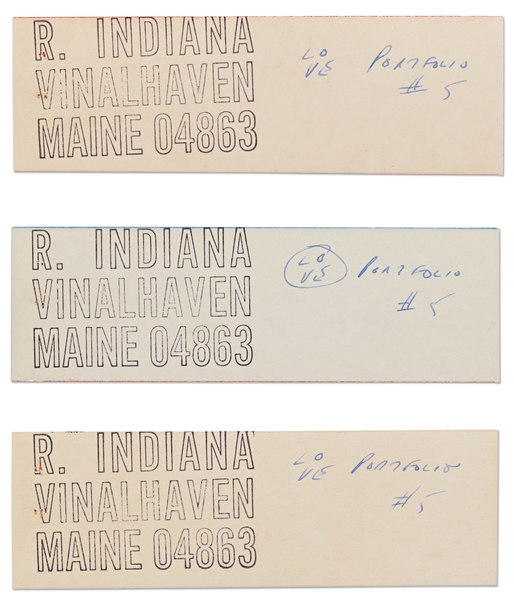 R. INDIANA
VINALHAVEN
MAINE 04863
LO
VE PORTFOLIO
# 5
R. INDIANA
VINALHAVEN
MAINE 04863
LO
VE PORTFOLIO
# 5
R. INDIANA
VINALHAVEN
MAINE 04863
LO
VE PORTFOLIO
#5